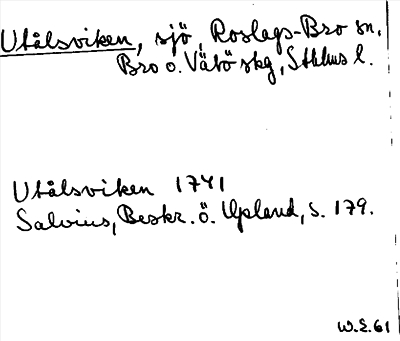 Utålsviken, sjö, Roslags-Bro sn,
Bro o. Vätö skg, Sthlms l.
Utålsviken 1741
Salvius, Beskr. ö. Upland, s. 179.
W.E. 61